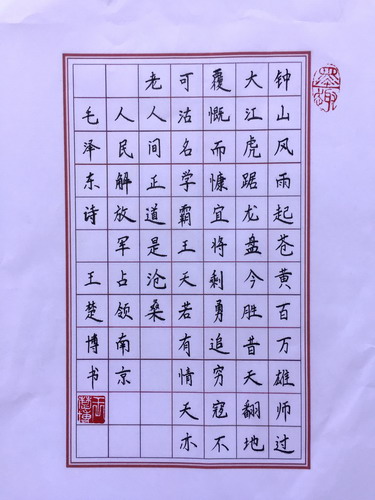 钟山风雨起苍黄百万雄师过
大江虎踞龙盘今胜昔天翻地
覆慨而慷宜将剩勇追穷寇不
可沽名学霸王天若有情天亦
老人间正道是沧桑
人民解放军占领南京
毛泽东诗 王楚博书